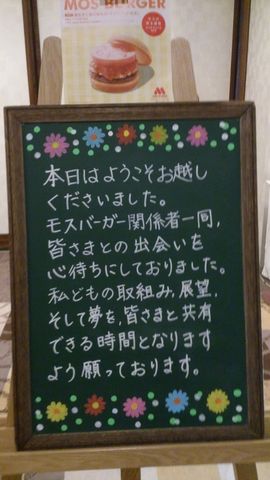 MOS BURGER
本日はようこそお越し
くださいました。
モスバーガー関係者一同,
皆さまとの出会いを
心待ちにしておりました。
私どもの取組み,展望,
そして夢を,皆さまと共有
できる時間となります
よう願っております。